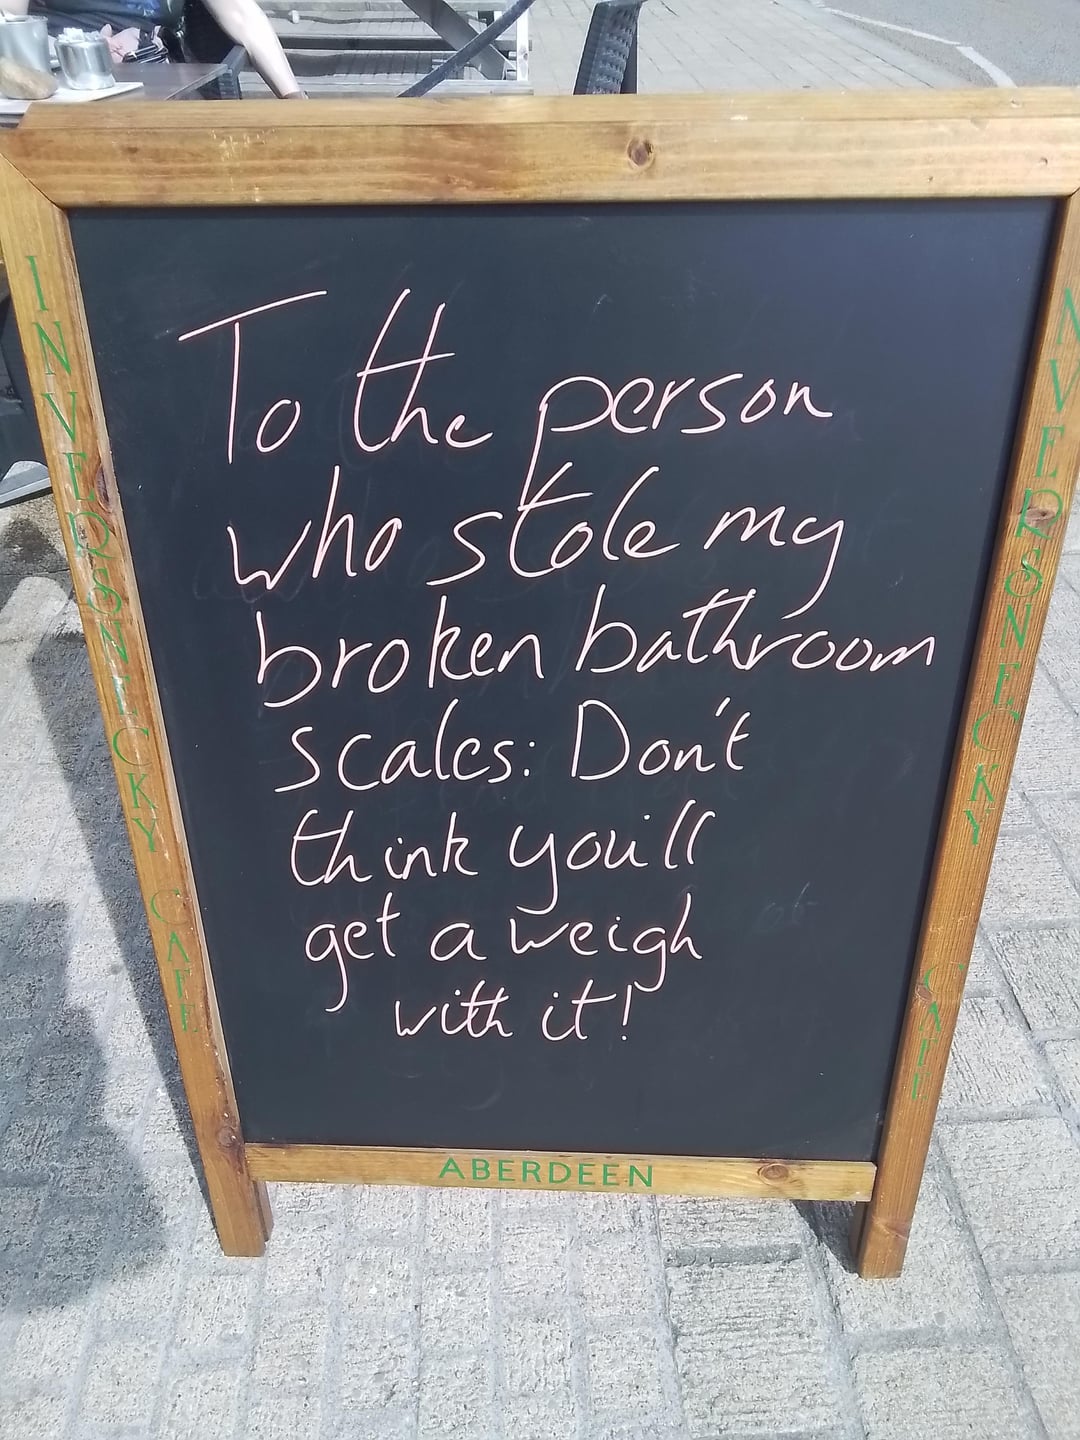 To the person
who stole my
broken bathroom
scales: Don't
think you'll
get a weigh
with it!
INVERSNECKY CAFE
INVERSNECKY CAFE
ABERDEEN